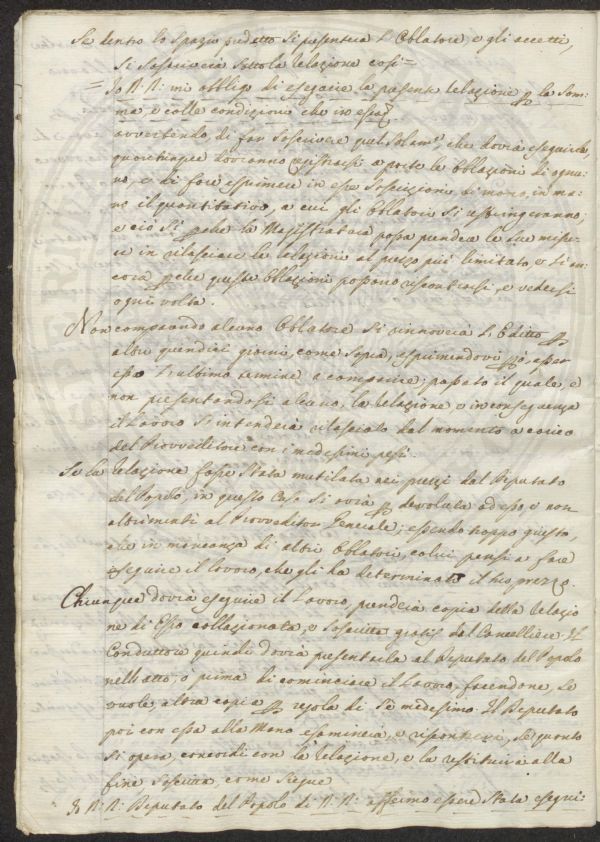 Se dentro lo spazio predetto si presenterà l'Oblatore, e gli accetti,
si soscriverà sotto la relazione così =
= Io N: N: mi obbligo di eseguire la presente relazione p la Som=
ma, e colle condizioni che in essa.
avvertendo, di far soscrivere quel Solam.e, che dovrà eseguirla,
quantunque dovranno registrarsi a parte le Oblazioni di ognu=
no, e di fare esprimere in esse Soscrizioni di mano, in ma=
no il quantitativo, a cui gli Oblatori si ristringeranno;
e ciò Sì pche la Magistratura possa prendere le sue misu=
re in rilasciare la relazione al prezzo più limitato, e Sì an=
cora pche queste Oblazioni possono riscontrarsi, e vedersi
ogni volta.
Non comparendo alcuno Oblatore si rinnoverà l'Editto p
altri quindici giorni, come sopra, esprimendovi, esser
esso l'ultimo termine a comparire; passato il quale, e
non presentandosi alcuno, la relazione, e in conseguenza
il Lavoro s'intenderà rilasciato dal momento a carico
del Provveditore con i medesimi pesi.
Se la relazione fosse stata mutilata nei prezzi dal Deputato
del Popolo, in questo Caso si avrà p devoluta ad esso, e non
altrimenti al Provveditor Generale; essendo troppo giusto,
che in mancanza di altri Oblatori, colui pensi a fare
eseguire il lavoro, che gli ha determinato il suo prezzo.
Chiunque dovrà eseguire il Lavoro, prenderà copia della relazio=
ne di Esso collazionata, e soscritta gratis dal Cancelliere. Il
Conduttore quindi dovrà presentarla al Deputato del Popolo
nell'atto, o prima di cominciare il Lavoro, facendone, se
vuole, altra copia p regola di se medesimo. Il Deputato
poi con essa alla Mano esaminerà, e riscontrerà, se quanto
si opera, concordi con la relazione, e la restituirà alla
fine soscritta, come segue
Io N: N: Deputato del Popolo di N: N: affermo essere stata esegui=